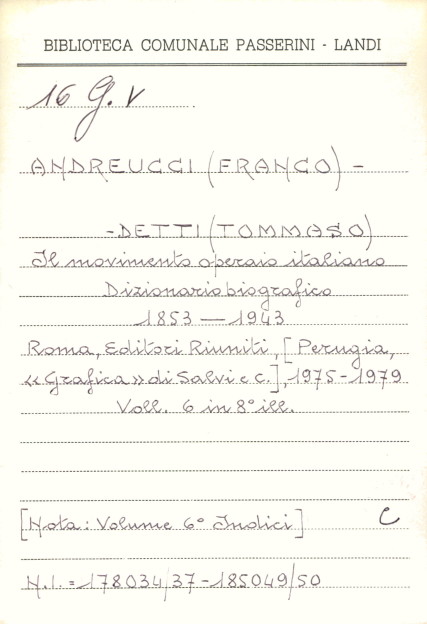 BIBLIOTECA COMUNALE PASSERINI - LANDI
16 G. V
ANDREUCCI (FRANCO) -
-DETTI (TOMMASO)
Il movimento operaio italiano
Dizionario biografico
1853 — 1943
Roma, Editori Riuniti, [Perugia,
«Grafica» di Salvi e C.], 1975-1979
Voll. 6 in 8° ill.
[Nota: Volume 6° Indici] C
N.I. = 178034/37-185049/50